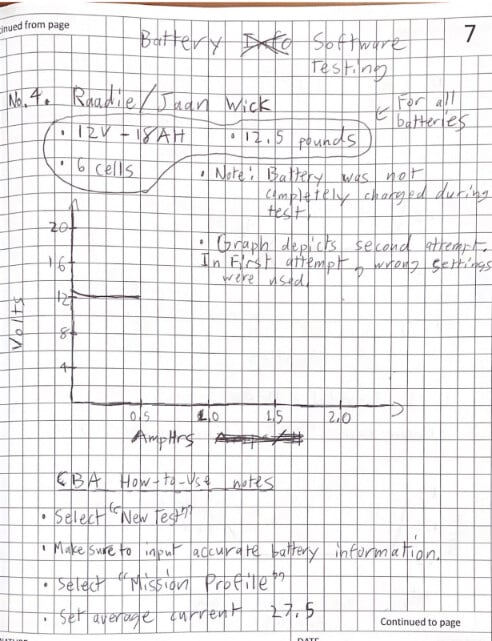 tinued from page
7
Battery Software
Testing
No. 4. Raadie/Jaan Wick
← For all
batteries
• 12V - 18AH • 12.5 pounds
• 6 cells
• Note: Battery was not
completely charged during
test.
• Graph depicts second attempt.
In First attempt, wrong settings
were used.
20
16
12
8
4
Volts
0.5 1.0 1.5 2.0
AmpHrs
CBA How-to-Use notes
• Select "New Test"
• Make sure to input accurate battery information.
• Select "Mission Profile"
• Set average current 27.5
Continued to page
DATE